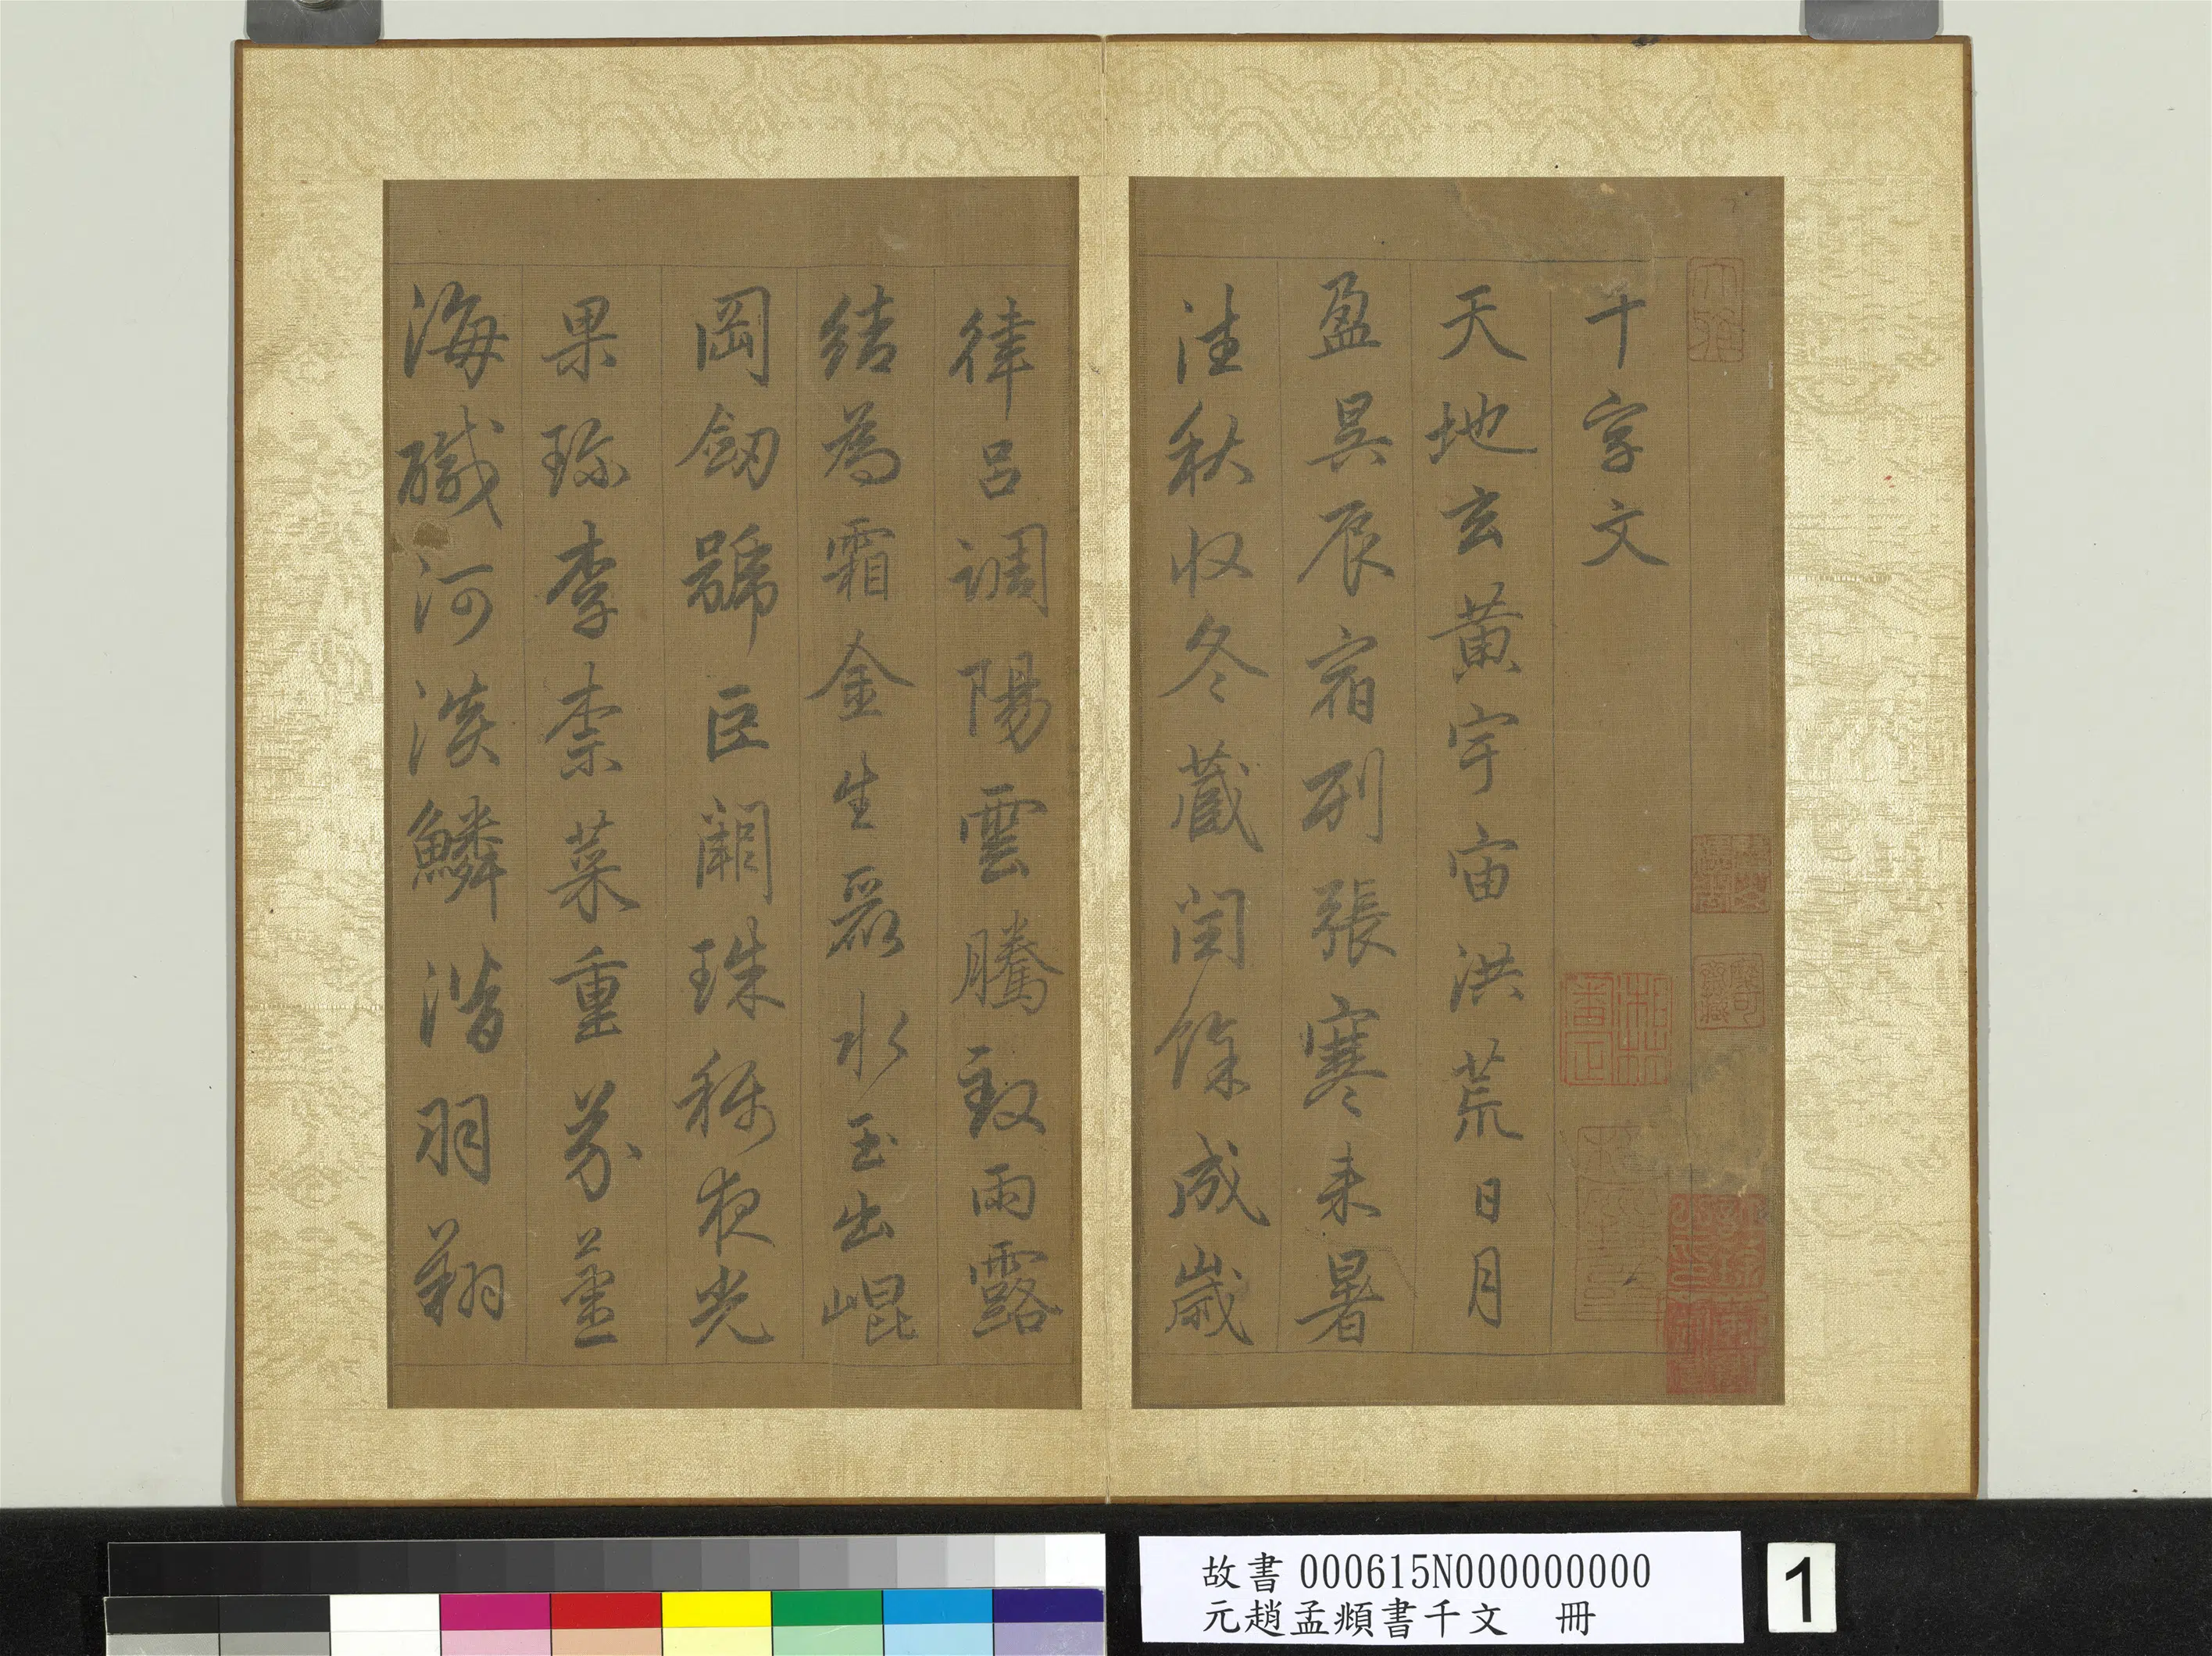 千字文
天地玄黄宇宙洪荒日月
盈昃辰宿列張寒来暑
往秋收冬藏閏餘成歲
律吕調陽雲騰致雨露
結為霜金生麗水玉出崐
岡劒號巨闕珠稱夜光
果珎李柰菜重芥薑
海醎河淡鱗潛羽翔
故書 000615N000000000
元趙孟頫書千文 冊
1